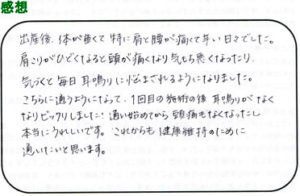 感想
出産後、体が重くて特に肩と腰が痛くて辛い日々でした。
肩こりがひどくなると頭が痛くなり気もち悪くなったり、
気づくと毎日耳鳴りに悩まされるようになりました。
こちらに通うようになって、1回目の施術の後耳鳴りがなく
なりビックリしました! 通い始めてから頭痛もなくなったし
本当にうれしいです。これからも健康維持のために
通いたいと思います。